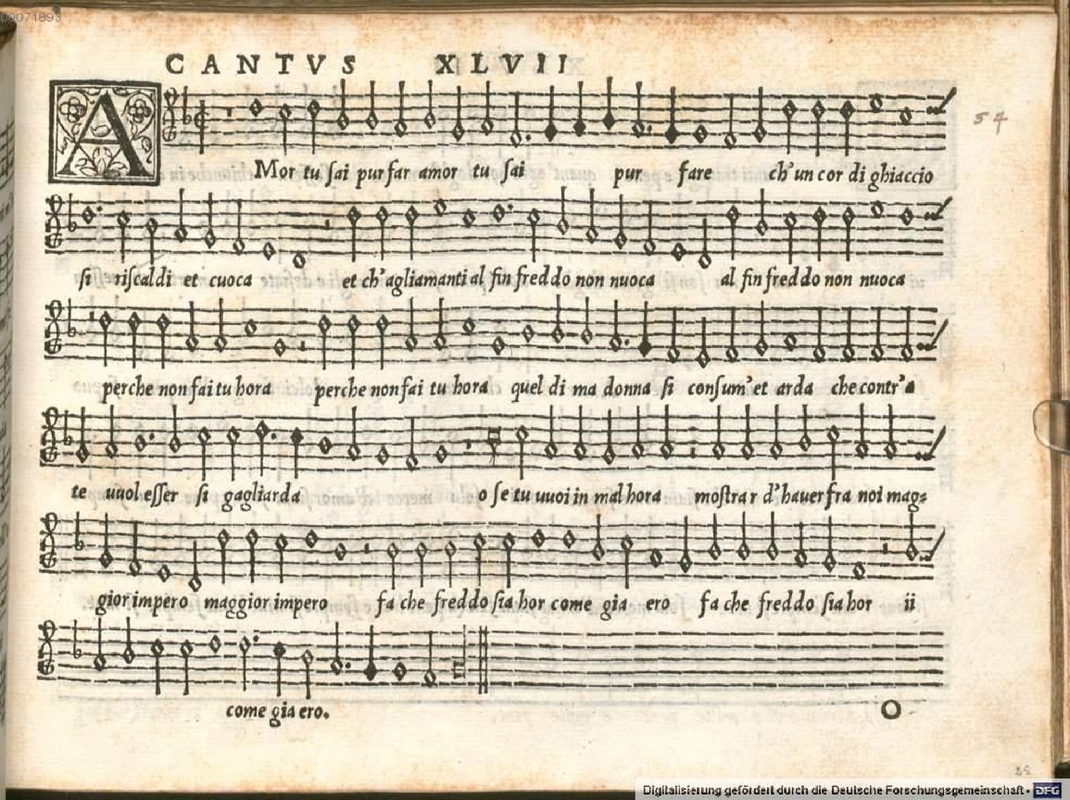 00071893
CANTVS XLVII
54
AMor tu ſai pur far amor tu ſai pur fare ch'un cor di ghiaccio
ſi riſcaldi et cuoca et ch'agliamanti al fin freddo non nuoca al fin freddo non nuoca
perche non fai tu hora perche non fai tu hora quel di ma donna ſi conſum'et arda che contr'a
te uuol eſſer ſi gagliarda o ſe tu uuoi in mal hora moſtrar d'hauer fra noi mag=
gior impero maggior impero fa che freddo ſia hor come gia ero fa che freddo ſia hor ii
come gia ero.
O
Digitalisierung gefördert durch die Deutsche Forschungsgemeinschaft - DFG